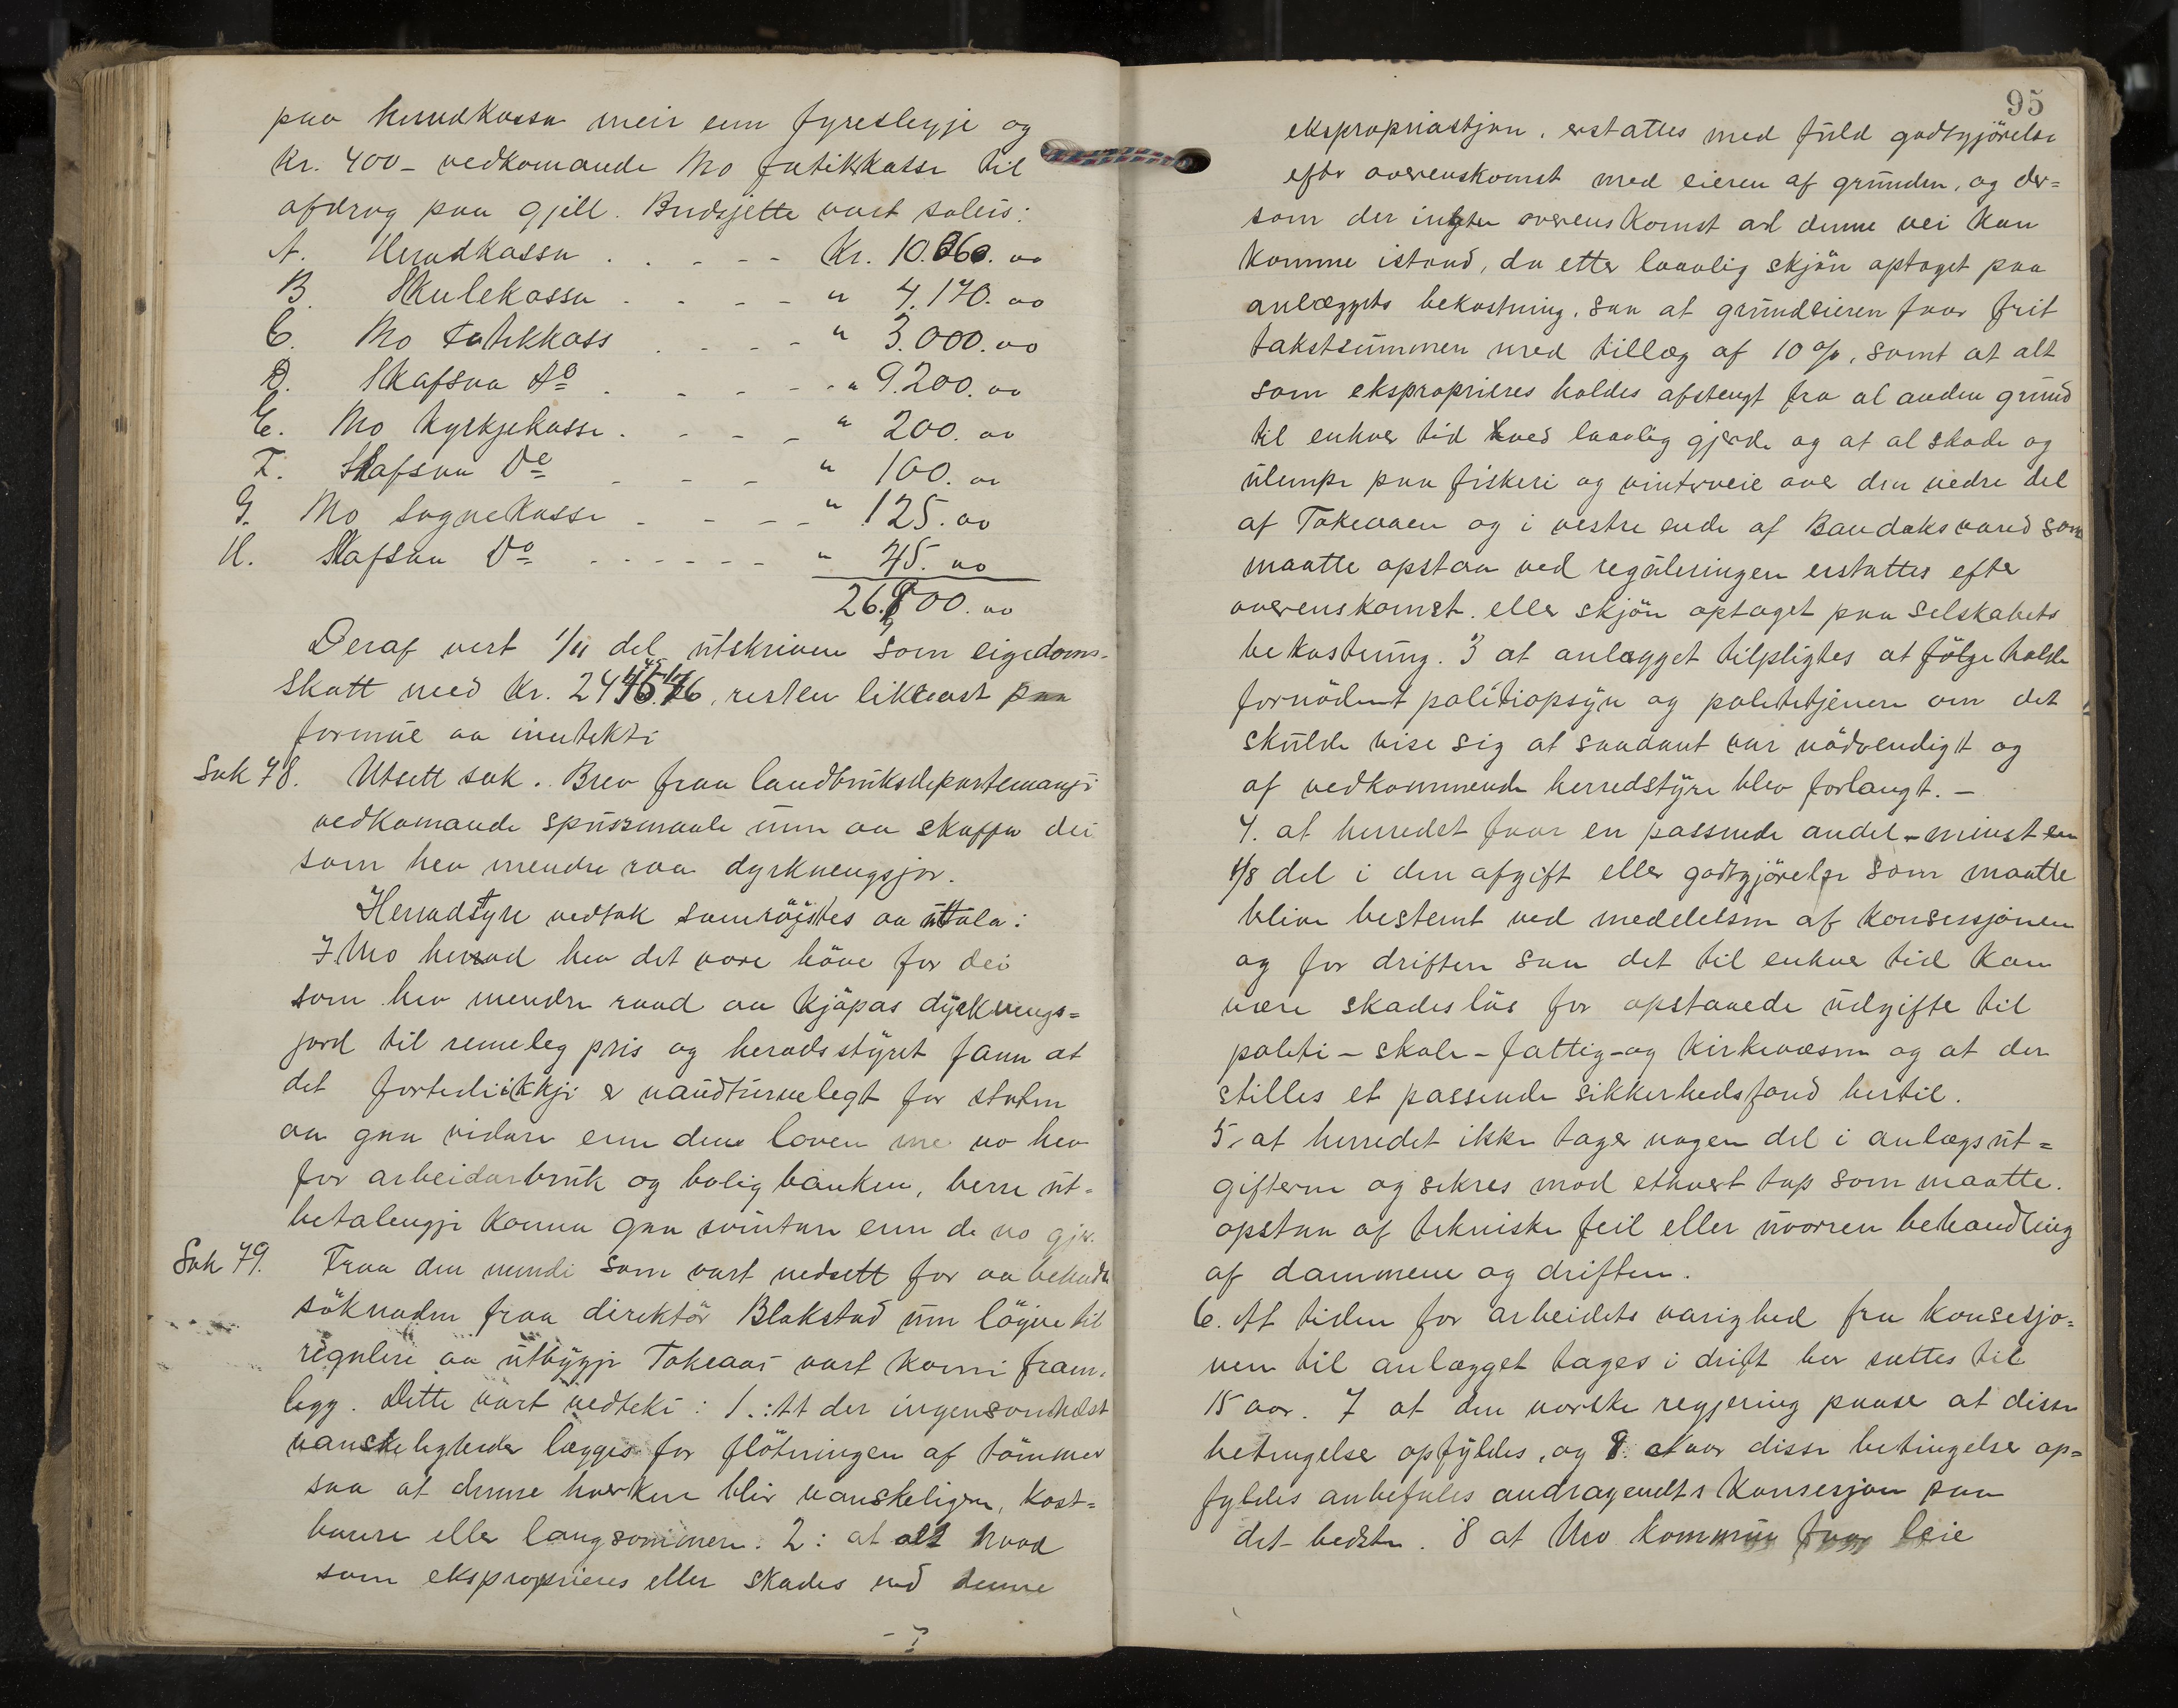 paa heradkassa meir enn fyreslegje og
Kr. 400 - vedkomande Mo fatikkasse til
afdrag paa gjeld. Budsjette vart soleis:
A. Heradkassa . . - - - Kr. 10.060. oo
B. Skulekassa - - - - " 4.170. oo
C. Mo Fatikkass . - - - " 3.000. oo
D. Skafsaa Do . - - - " 9.200. oo
E. Mo Kyrkjekasse . - - - " 200. oo
F. Skafsaa Do - - - " 100. oo
G. Mo Sognekasse - - - - " 125. oo
H. Skafsaa Do - - - - - - " 45. oo
26.900. oo
Deraf vert 1/11 del utskriven som eigedoms-
skatt med Kr. 2445, resten likeeast paa
formue aa inntekti
Sak 78. Utsett sak. Brev fraa landbruksdepartemangi
vedkomande spursmaale um aa skaffa dei
som hev mendre raa dyrknengsjor.
Heradstyre vedtok samröystes aa uttala:
I Mo herad hev det vore höve for dei
som hev mendre raad aa kjöpas dyrknengs=
jord til remeleg pris og heradsstyret fann at
det fortedi ikkji er naudturvelegt for staten
aa gaa vidare enn den loven me no hev
for arbeidarbruk og bolig banken, berre ut-
betalengji kunna gaa svintare enn de no gjer.
Sak 79. Fraa den nemndi som vart nedsett for aa behandla
söknaden fraa direktör Blakstad um löyve til
regulere aa utbyggje Tokeaai vart komi fram-
legg. Dette vart vedteki: 1. : At der ingensomhelst
vanskeligheder lægges for flötningen af tömmer
saa at denne hverken blir vanskeligere, kost=
barere eller langsommere. 2 : at alt hvad
som eksproprieres eller skades ved denne
95
ekspropriastjon, erstattes med fuld godtgjörelse
efter overenskomst med eieren af grunden, og der=
som der ingen overenskomst ad denne vei kan
komme istand, da etter laavlig skjön optaget paa
anlæggets bekostning, saa at grundeieren faar frit
takstsummen med tillæg af 10 %, samt at alt
som eksproprieres holdes afstengt fra al anden grund
til enhver tid ved laavlig gjerde og at al skade og
ulempe paa fiskeri og vinterveie over den nedre del
af Tokeaaen og i vestre ende af Bandaksvand som
maatte opstaa ved reguleringen erstattes efter
overenskomst eller skjön optaget paa selskabets
bekostning. 3 at anlægget tilpligtes at fölge holde
fornödent politiopsyn og politetjenere om det
skulde vise sig at saadant var nödvendigt og
af vedkommende herredstyre blev forlangt. -
4. at herredet faar en passende andel - minst en
1/8 del i den afgift eller godtgjörelse som maatte
blive bestemt ved meddelelsen af konsessjonen
og for driften saa det til enhver tid kan
være skadeslös for opstaaede udgifte til
politi - skole - fattig - og kirkevæsen og at der
stilles et passende sikkerhedsfond hertil.
5. at herredet ikke tager nogen del i anlægsut=
gifterne og sikres mod ethvert tap som maatte
opstaa af tekniske feil eller uvorren behandling
af dammene og driften.
6. At tiden for arbeidets varighed fra konsesjo=
nen til anlægget tages i drift her sættes til
15 aar. 7 at den norske regjering paaser at disse
betingelser opfyldes, og 8. Naar disse betingelser op=
fyldes anbefales andragendets konsesjon paa
det bedste. 8 at Mo kommun faar leie